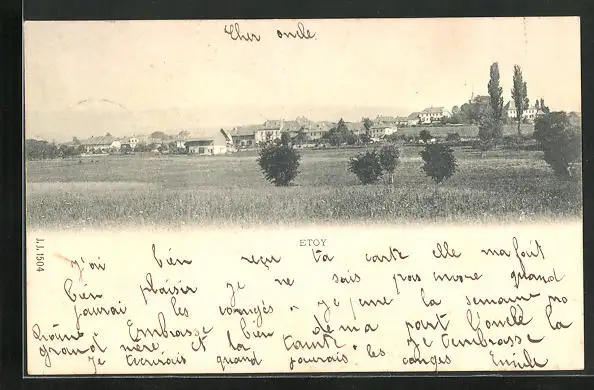 Cher oncle
ETOY
J.J. 1504
j'ai bien reçu ta carte elle ma fait
bien plaisir je ne sais pas encore quand
jaurai les congés je pense la semaine pro
chaine Embrasse bien de ma part l'oncle la
grand mère et la tante Je tembrasse
Je técrirais quand jaurais les congés Emile